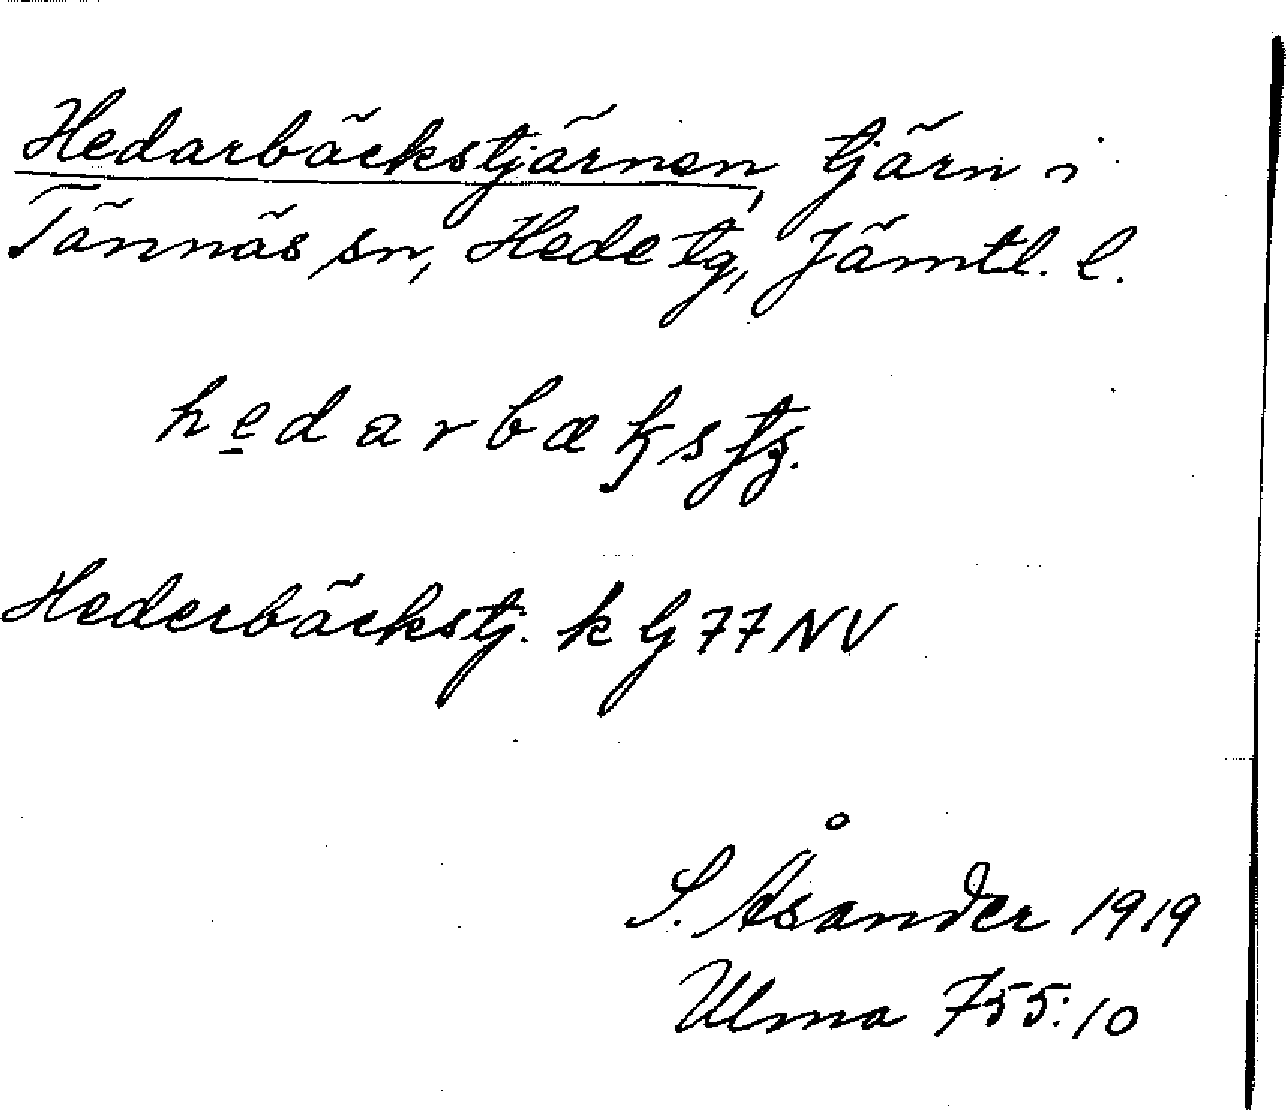 Hedarbäckstjärnen, tjärn i
Tännäs sn, Hede tg, Jämtl. l.
hedarbækstj.
Hederbäckstj. k G 77 NV
S. Åsander 1919
Ulma 755:10